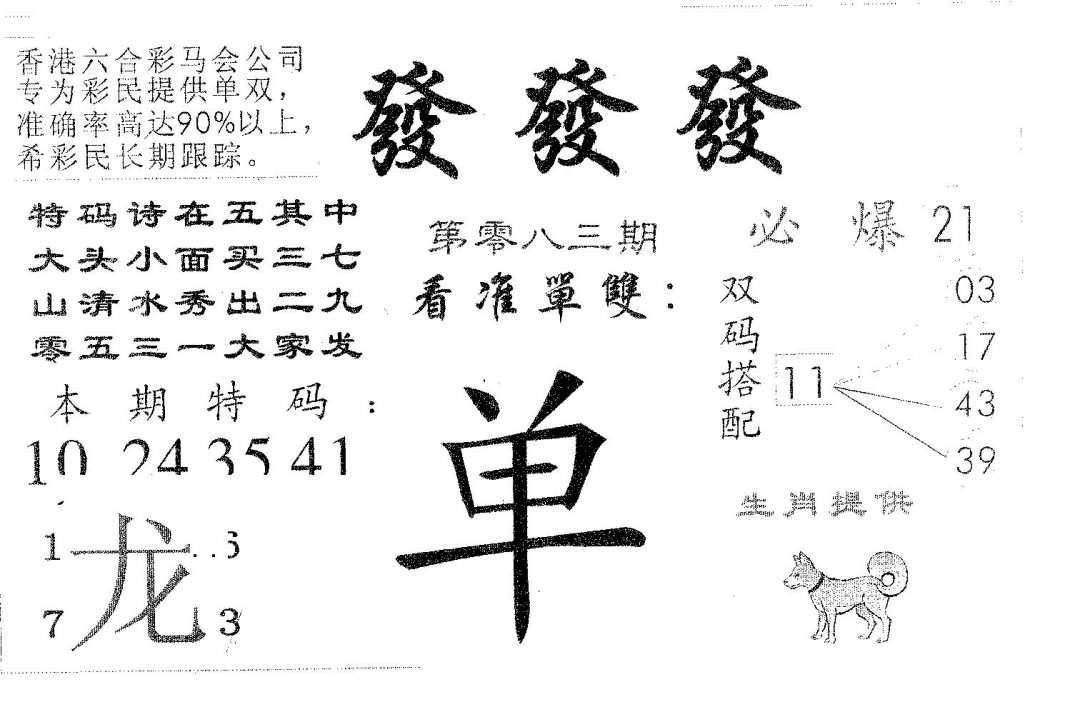 香港六合彩马会公司
专为彩民提供单双，
准确率高达90%以上，
希彩民长期跟踪。
發 發 發
特码诗在五其中
大头小面买三七
山清水秀出二九
零五三一大家发
第零八三期
看准單雙：
单
必爆21
双码搭配
11
03
17
43
39
本期特码：
10 24 35 41
龙
1
7 3
生肖提供